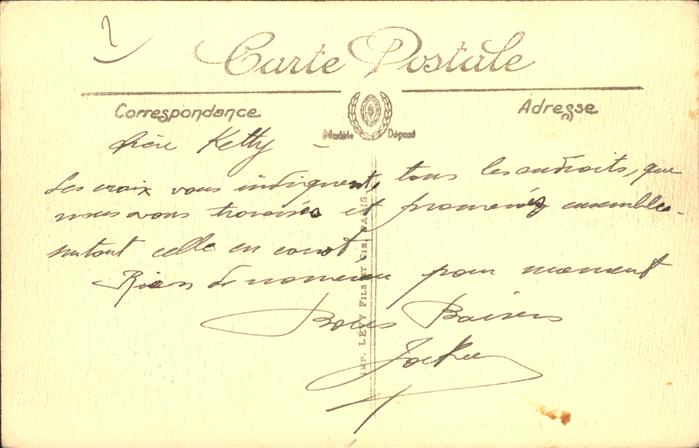 Carte Postale
Correspondance
Adresse
Modèle Déposé
chère Ketty
Les croix vous indiquent, tous les endroits, que
nous avons et promenés ensemble.
surtout celle en
Rien de nouveau pour moment
Bons Baisers
IMP. LEVY FILS ET CIE, PARIS